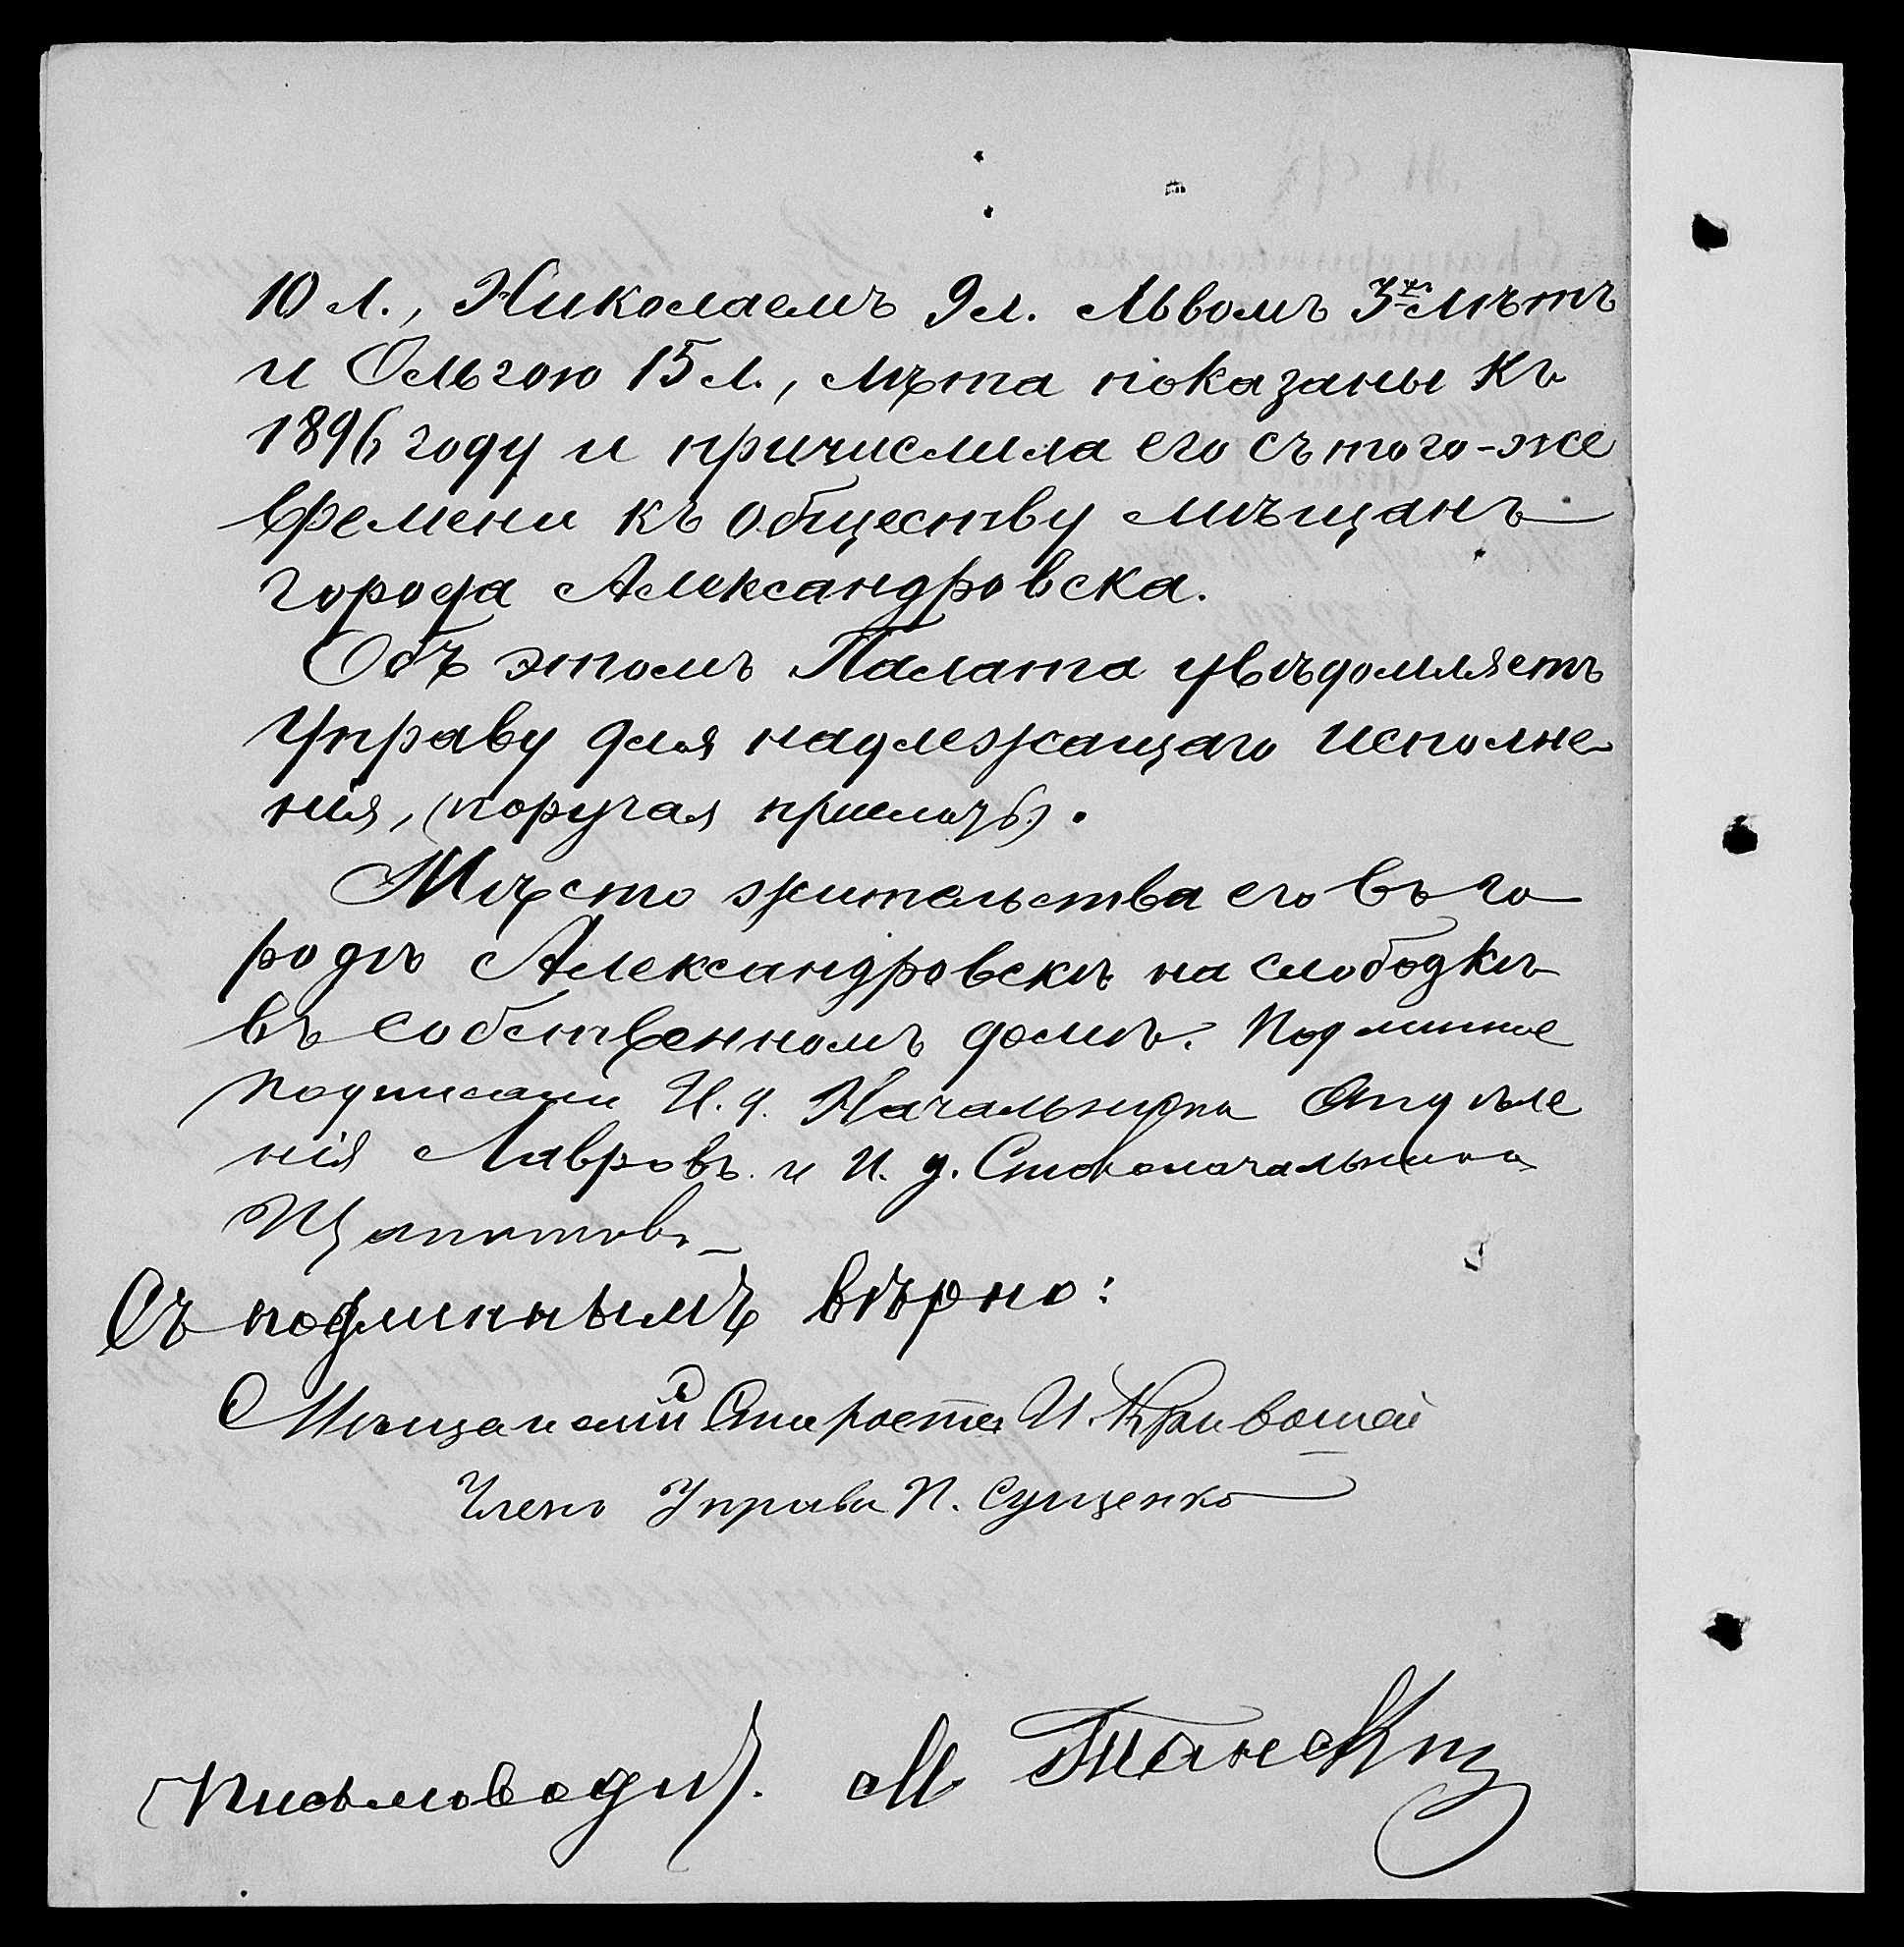 10 л., Николаемъ 9 л. Львомъ 3хъ лѣтъ
и Ольгою 15 л., лѣта показаны къ
1896 году и причислила его съ того-же
времени къ обществу мѣщанъ
города Александровска.
Объ этомъ Палата увѣдомляетъ
Управу для надлежащаго исполне
нія, (поручая
Мѣсто жительства его въ го
родѣ Александровскѣ на слободкѣ
въ собственномъ домѣ. Подлинное
подписали И. д. Начальника Отдѣле
нія Лавровъ и И. д. Столоначальника
Съ подлиннымъ вѣрно:
Мѣщанскій Староста И. Кривошей
Членъ Управы П. Сущенко
Письмоводит. М